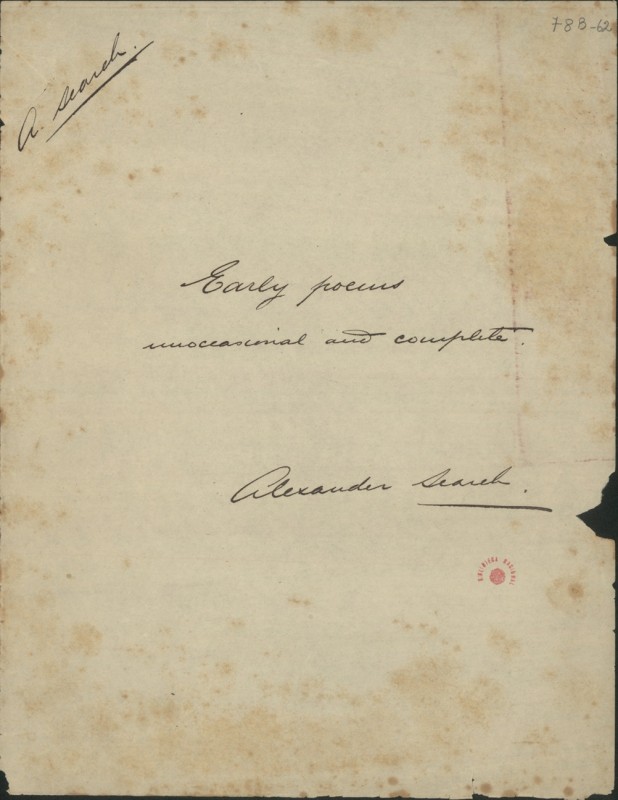 78B-62
A. Search.
Early poems
unoccasional and complete.
Alexander Search.
BIBLIOTECA NACIONAL